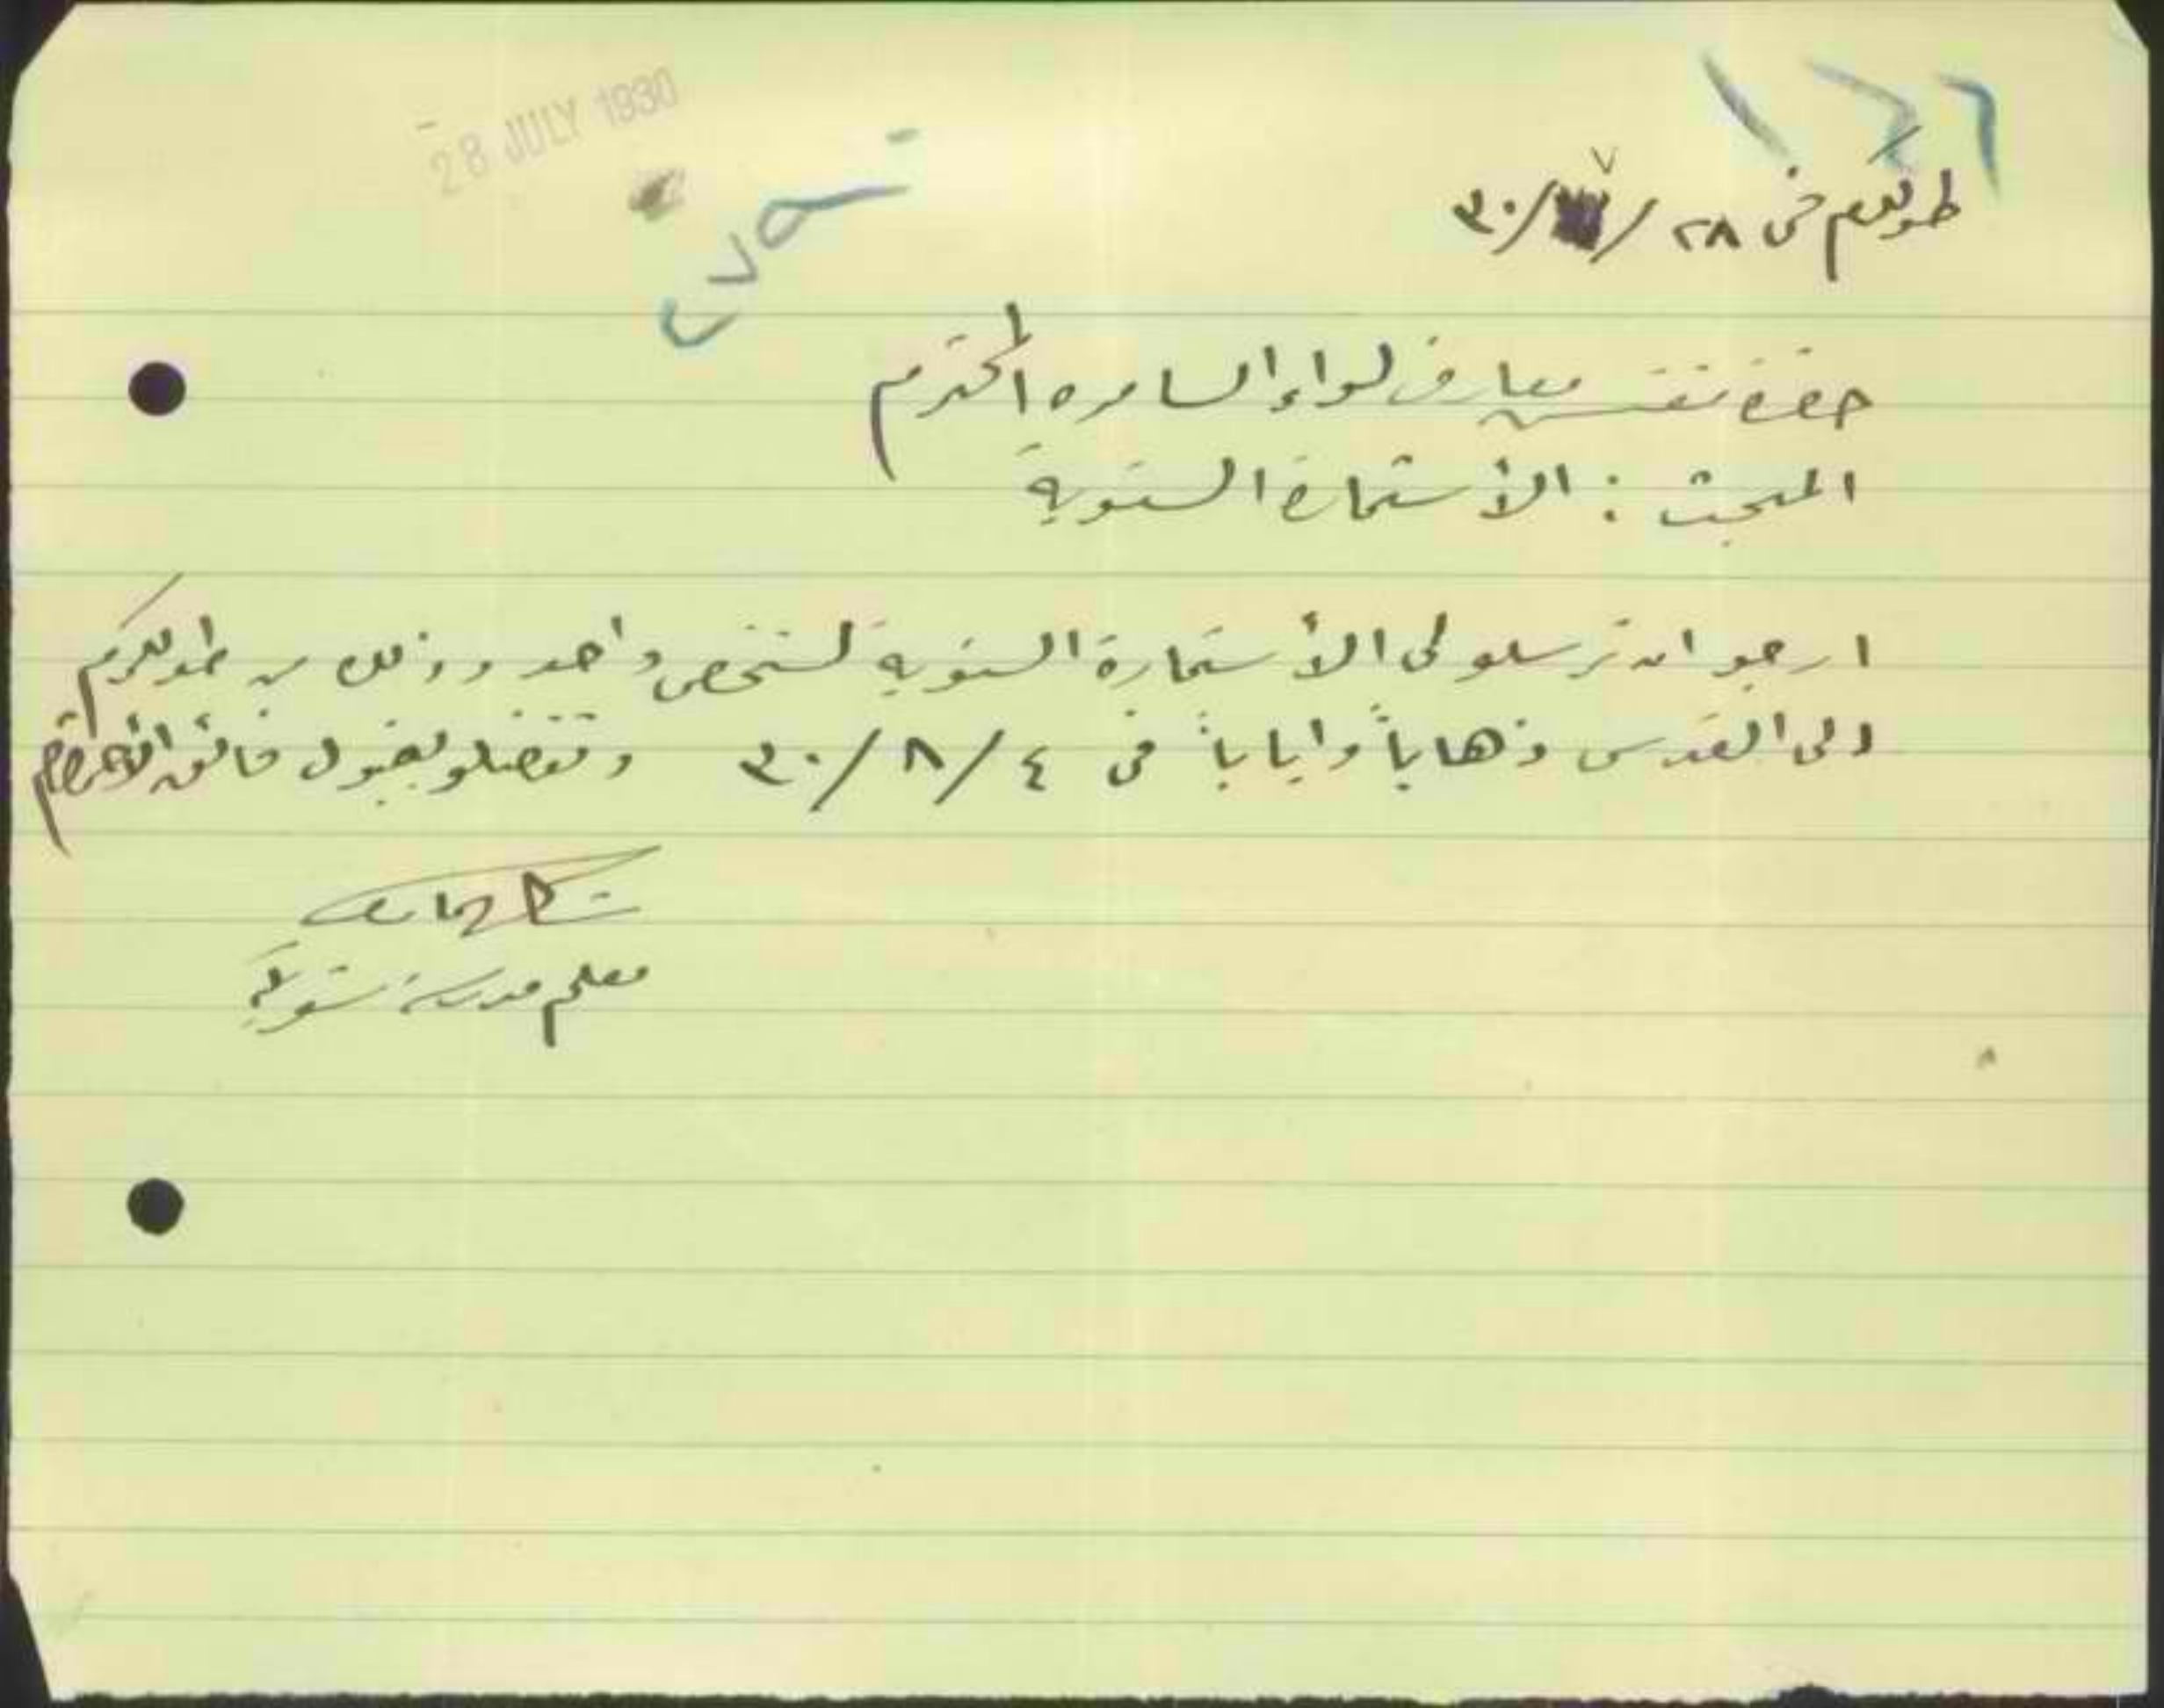 28 JULY 1930
١٦٦
طولكرم في ٢٨/٧/٣٠
حضرة مفتش معارف لواء السامره المحترم
المبحث : الأستمارة السنوية
ارجو ان ترسلو لي الأستمارة السنوية لشخص واحد وذلك من طولكرم
الى القدس ذهاباً واياباً في ٤/٨/٣٠ وتفضلو بقبول فائق الأحترام
معلم مدرسة شويكة